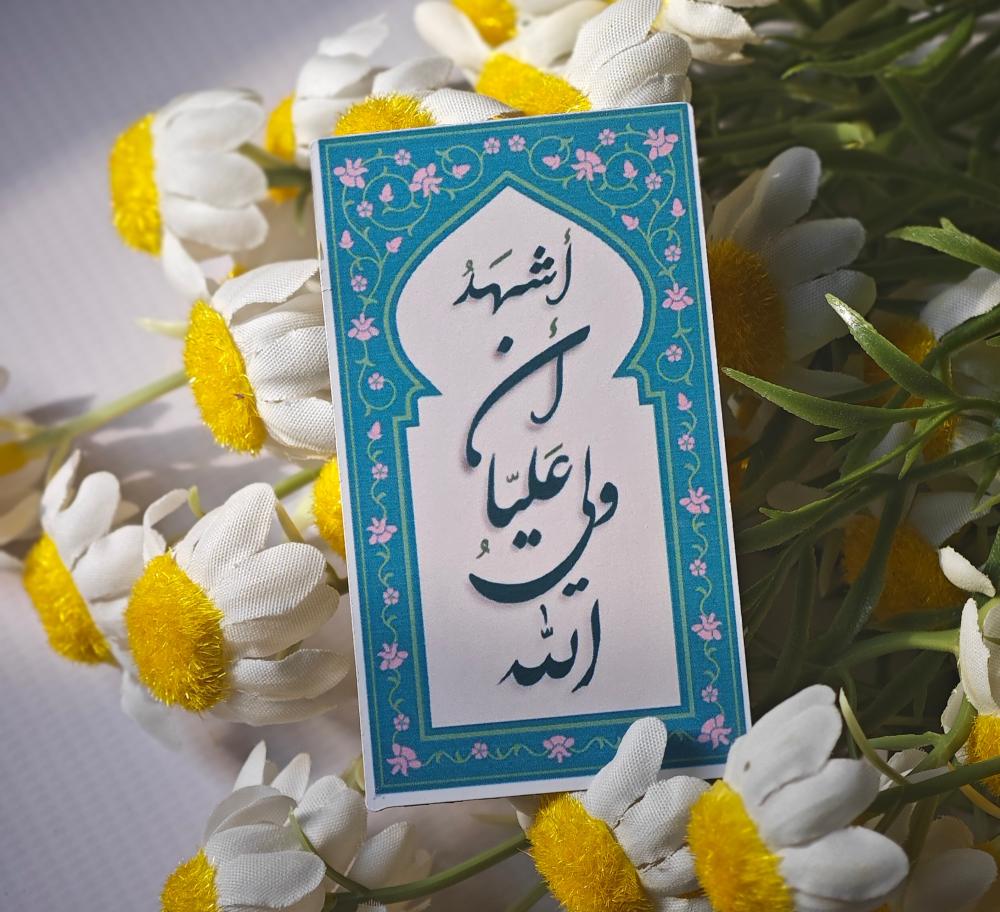 أشهَدُ
أن
عَليّا
ولیُ
الله